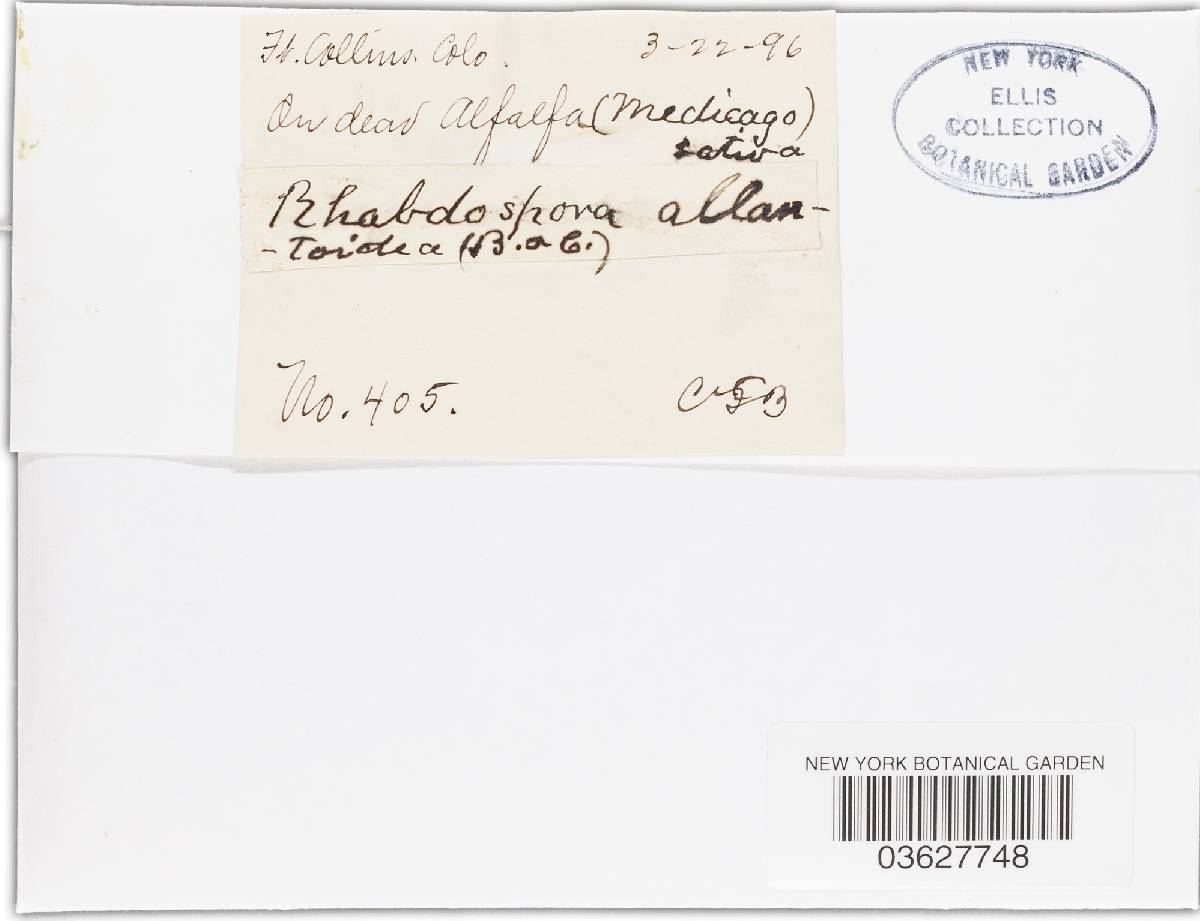 Ft. Collins. Colo.
3-22-96
On dead Alfalfa (Medicago)
sativa
Rhabdospora allan-
-toidea (B. & C.)
No. 405.
CFB
NEW YORK
ELLIS
COLLECTION
BOTANICAL GARDEN
NEW YORK BOTANICAL GARDEN
03627748